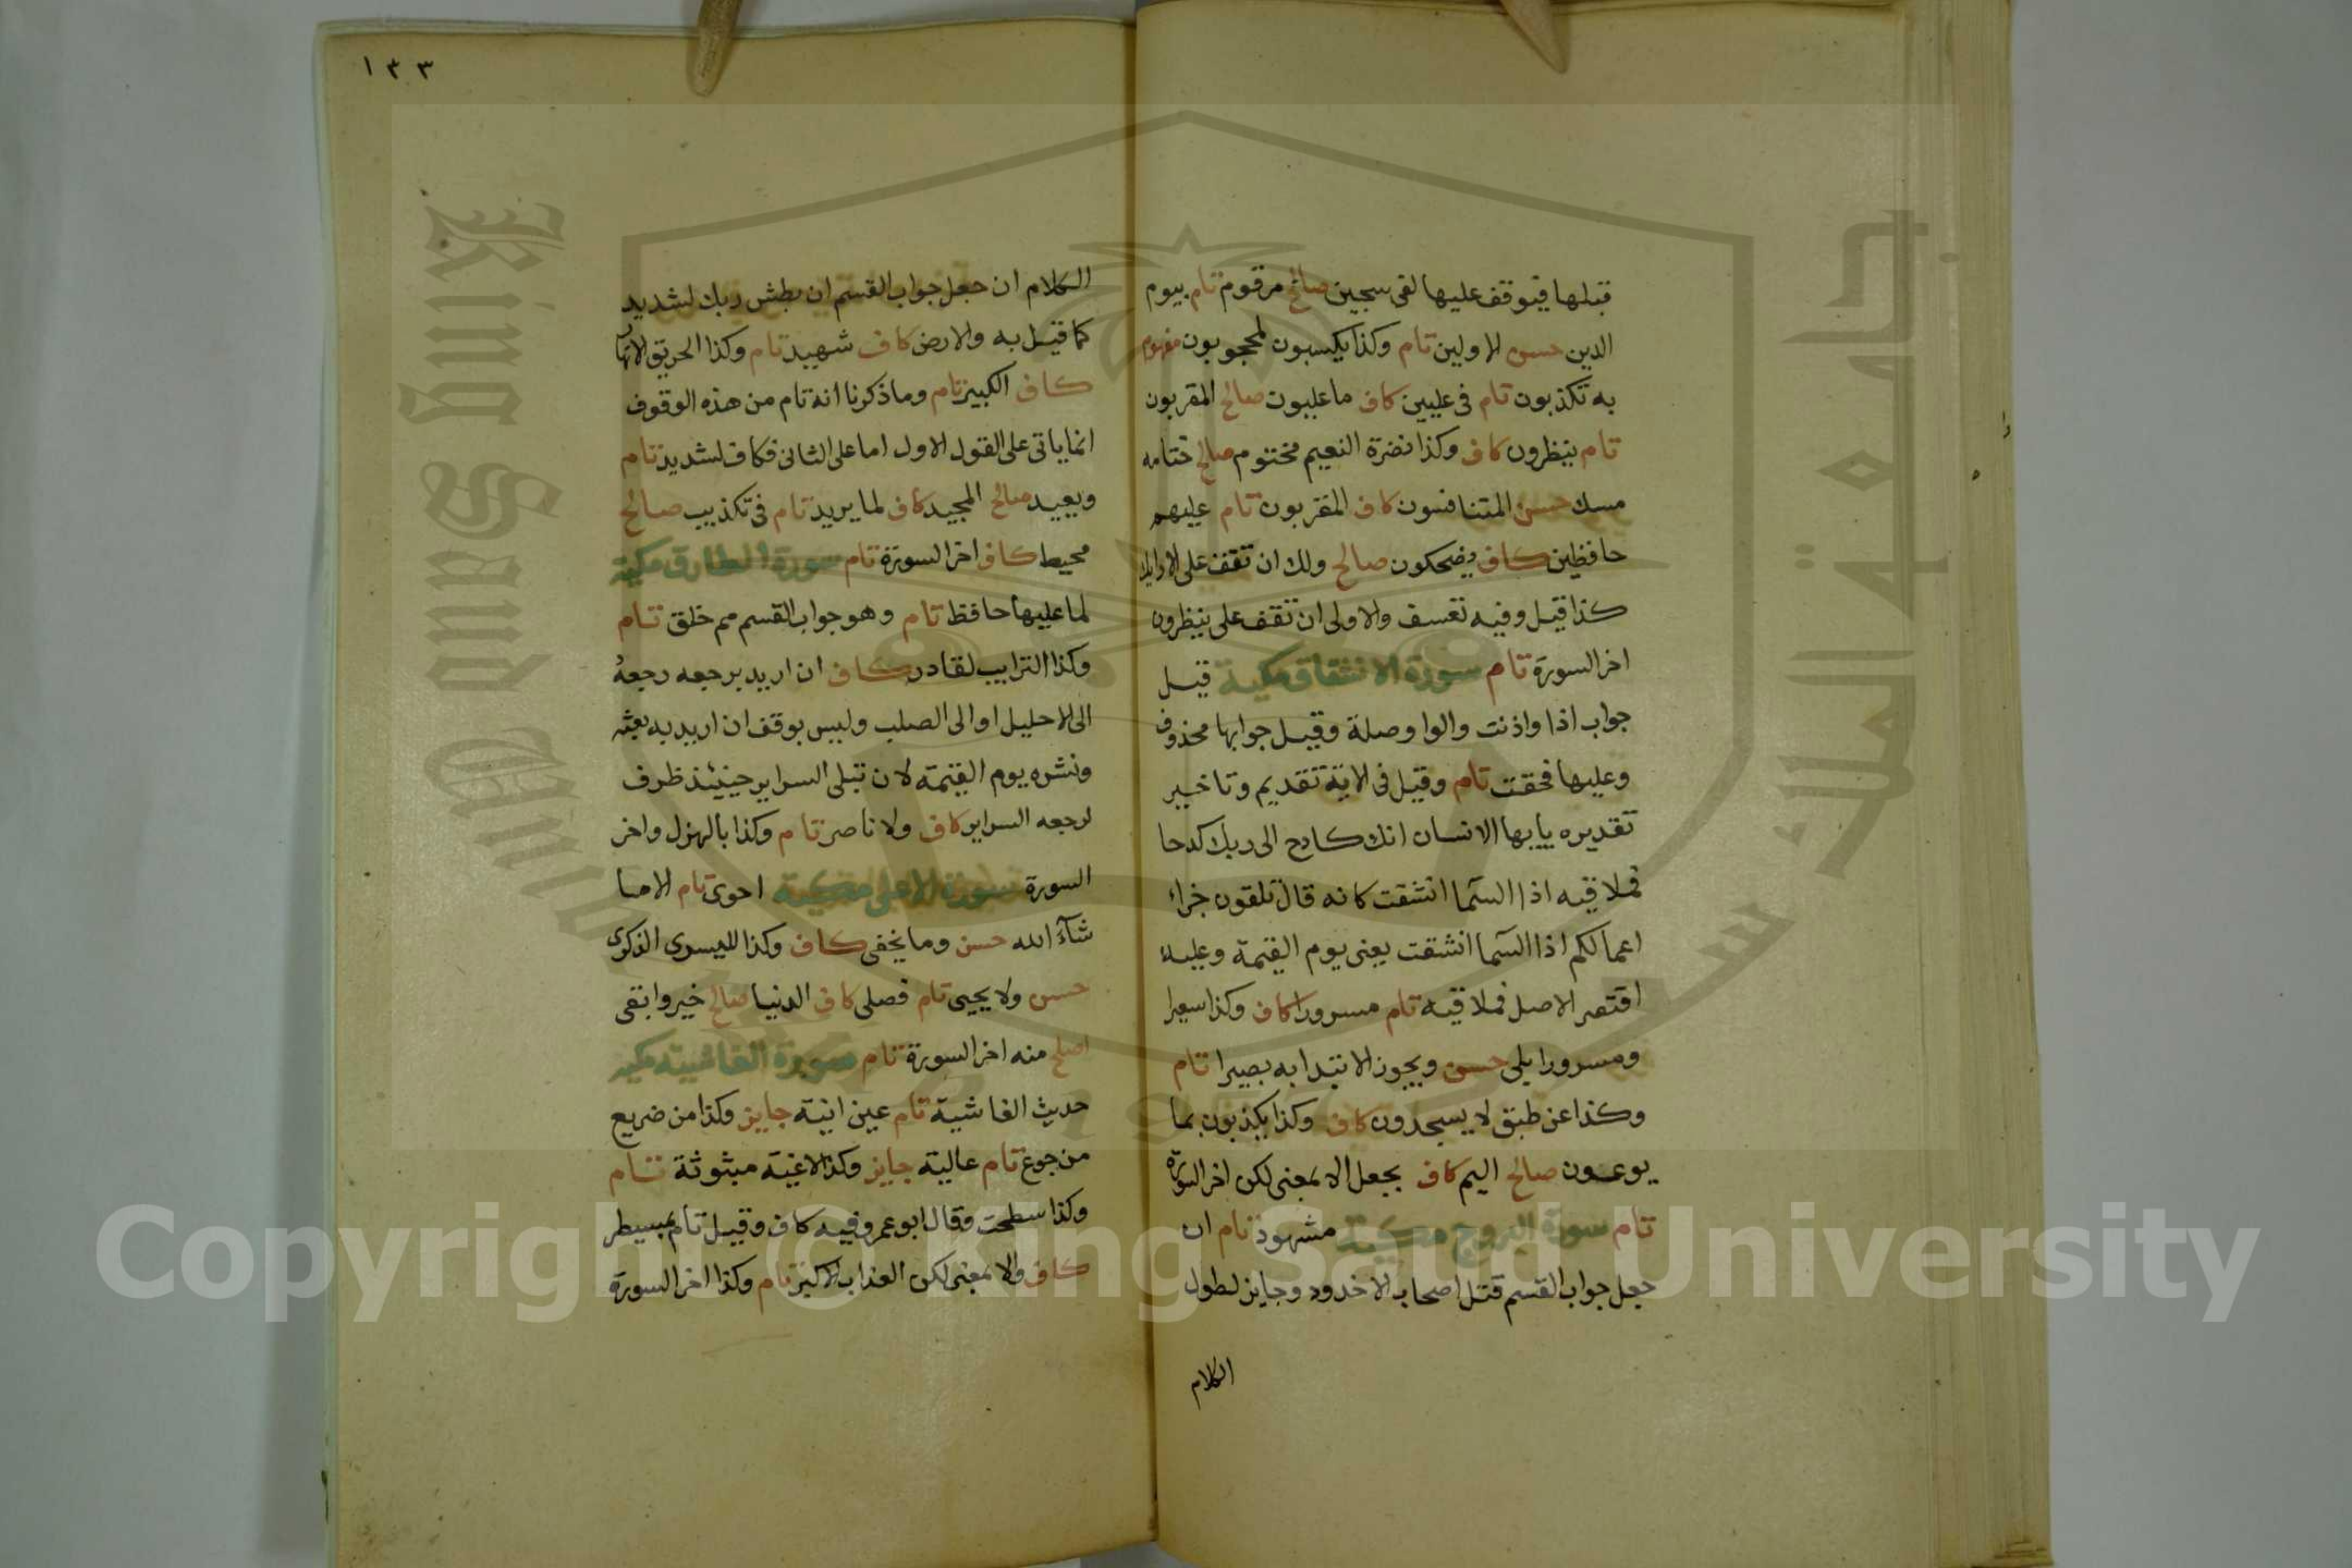 قبلها فيوقف عليها لفى سجين صالح مرقوم تام بيوم
الدين حسن الاولين تام وكذا يكسبون لمحجوبون مفهوم
به تكذبون تام فى عليين كاف ما عليون صالح المقربون
تام ينظرون كاف وكذا نضرة النعيم مختوم صالح ختامه
مسك حسن المتنافسون كاف المقربون تام عليهم
حافظين كاف يضحكون صالح ولك ان تقف على الارايك
كذا قيل وفيه تعسف والاولى ان تقف على ينظرون
اخر السورة تام سورة الانشقاق مكية قيل
جواب اذا واذنت والواو صلة وقيل جوابها محذوف
وعليها فحقت تام وقيل فى الاية تقديم وتاخير
تقديره يايها الانسان انك كادح الى ربك كدحا
فملاقيه اذا السمآ انشقت كانه قال تلقون جزاء
اعمالكم اذا السمآ انشقت يعنى يوم القيمة وعليه
اقتصر الاصل فملاقيه تام مسرورا كاف وكذا سعيرا
ومسرورا بلى حسن ويجوز الابتدا به بصيرا تام
وكذا عن طبق لا يسجدون كاف وكذا يكذبون بما
يوعون صالح اليم كاف بجعل الا بمعنى لكن اخر السورة
تام سورة البروج مكية مشهود تام ان
جعل جواب القسم قتل اصحاب الاخدود وجايز لطول
الكلام
١٣٣
الكلام ان جعل جواب القسم ان بطش ربك لشديد
كما قيل به والارض كاف شهيد تام وكذا الحريق الانهار
كاف الكبير تام وما ذكرنا انه تام من هذه الوقوف
انما ياتى على القول الاول اما على الثانى فكاف لشديد تام
ويعيد صالح المجيد كاف لما يريد تام فى تكذيب صالح
محيط كاف اخر السورة تام سورة الطارق مكية
لما عليها حافظ تام وهو جواب القسم مم خلق تام
وكذا الترايب لقادر كاف ان اريد برجعه رجعه
الى الاحليل او الى الصلب وليس بوقف ان اريد به بعثه
ونشره يوم القيمة لان تبلى السراير حينئذ ظرف
لرجعه السراير كاف ولا ناصر تام وكذا بالهزل واخر
السورة سورة الاعلى مكية احوى تام الا ما
شآء الله حسن وما يخفى كاف وكذا لليسرى الذكرى
حسن ولا يحيى تام فصلى كاف الدنيا صالح خير وابقى
اصلح منه اخر السورة تام سورة الغاشية مكية
حديث الغاشية تام عين انية جايز وكذا من ضريع
من جوع تام عالية جايز وكذا لاغية مبثوثة تام
وكذا سطحت وقال ابو عمرو فيه كاف وقيل تام بمسيطر
كاف والا بمعنى لكن العذاب الاكبر تام وكذا اخر السورة
King Saud University
جامعة الملك سعود
Copyright © King Saud University